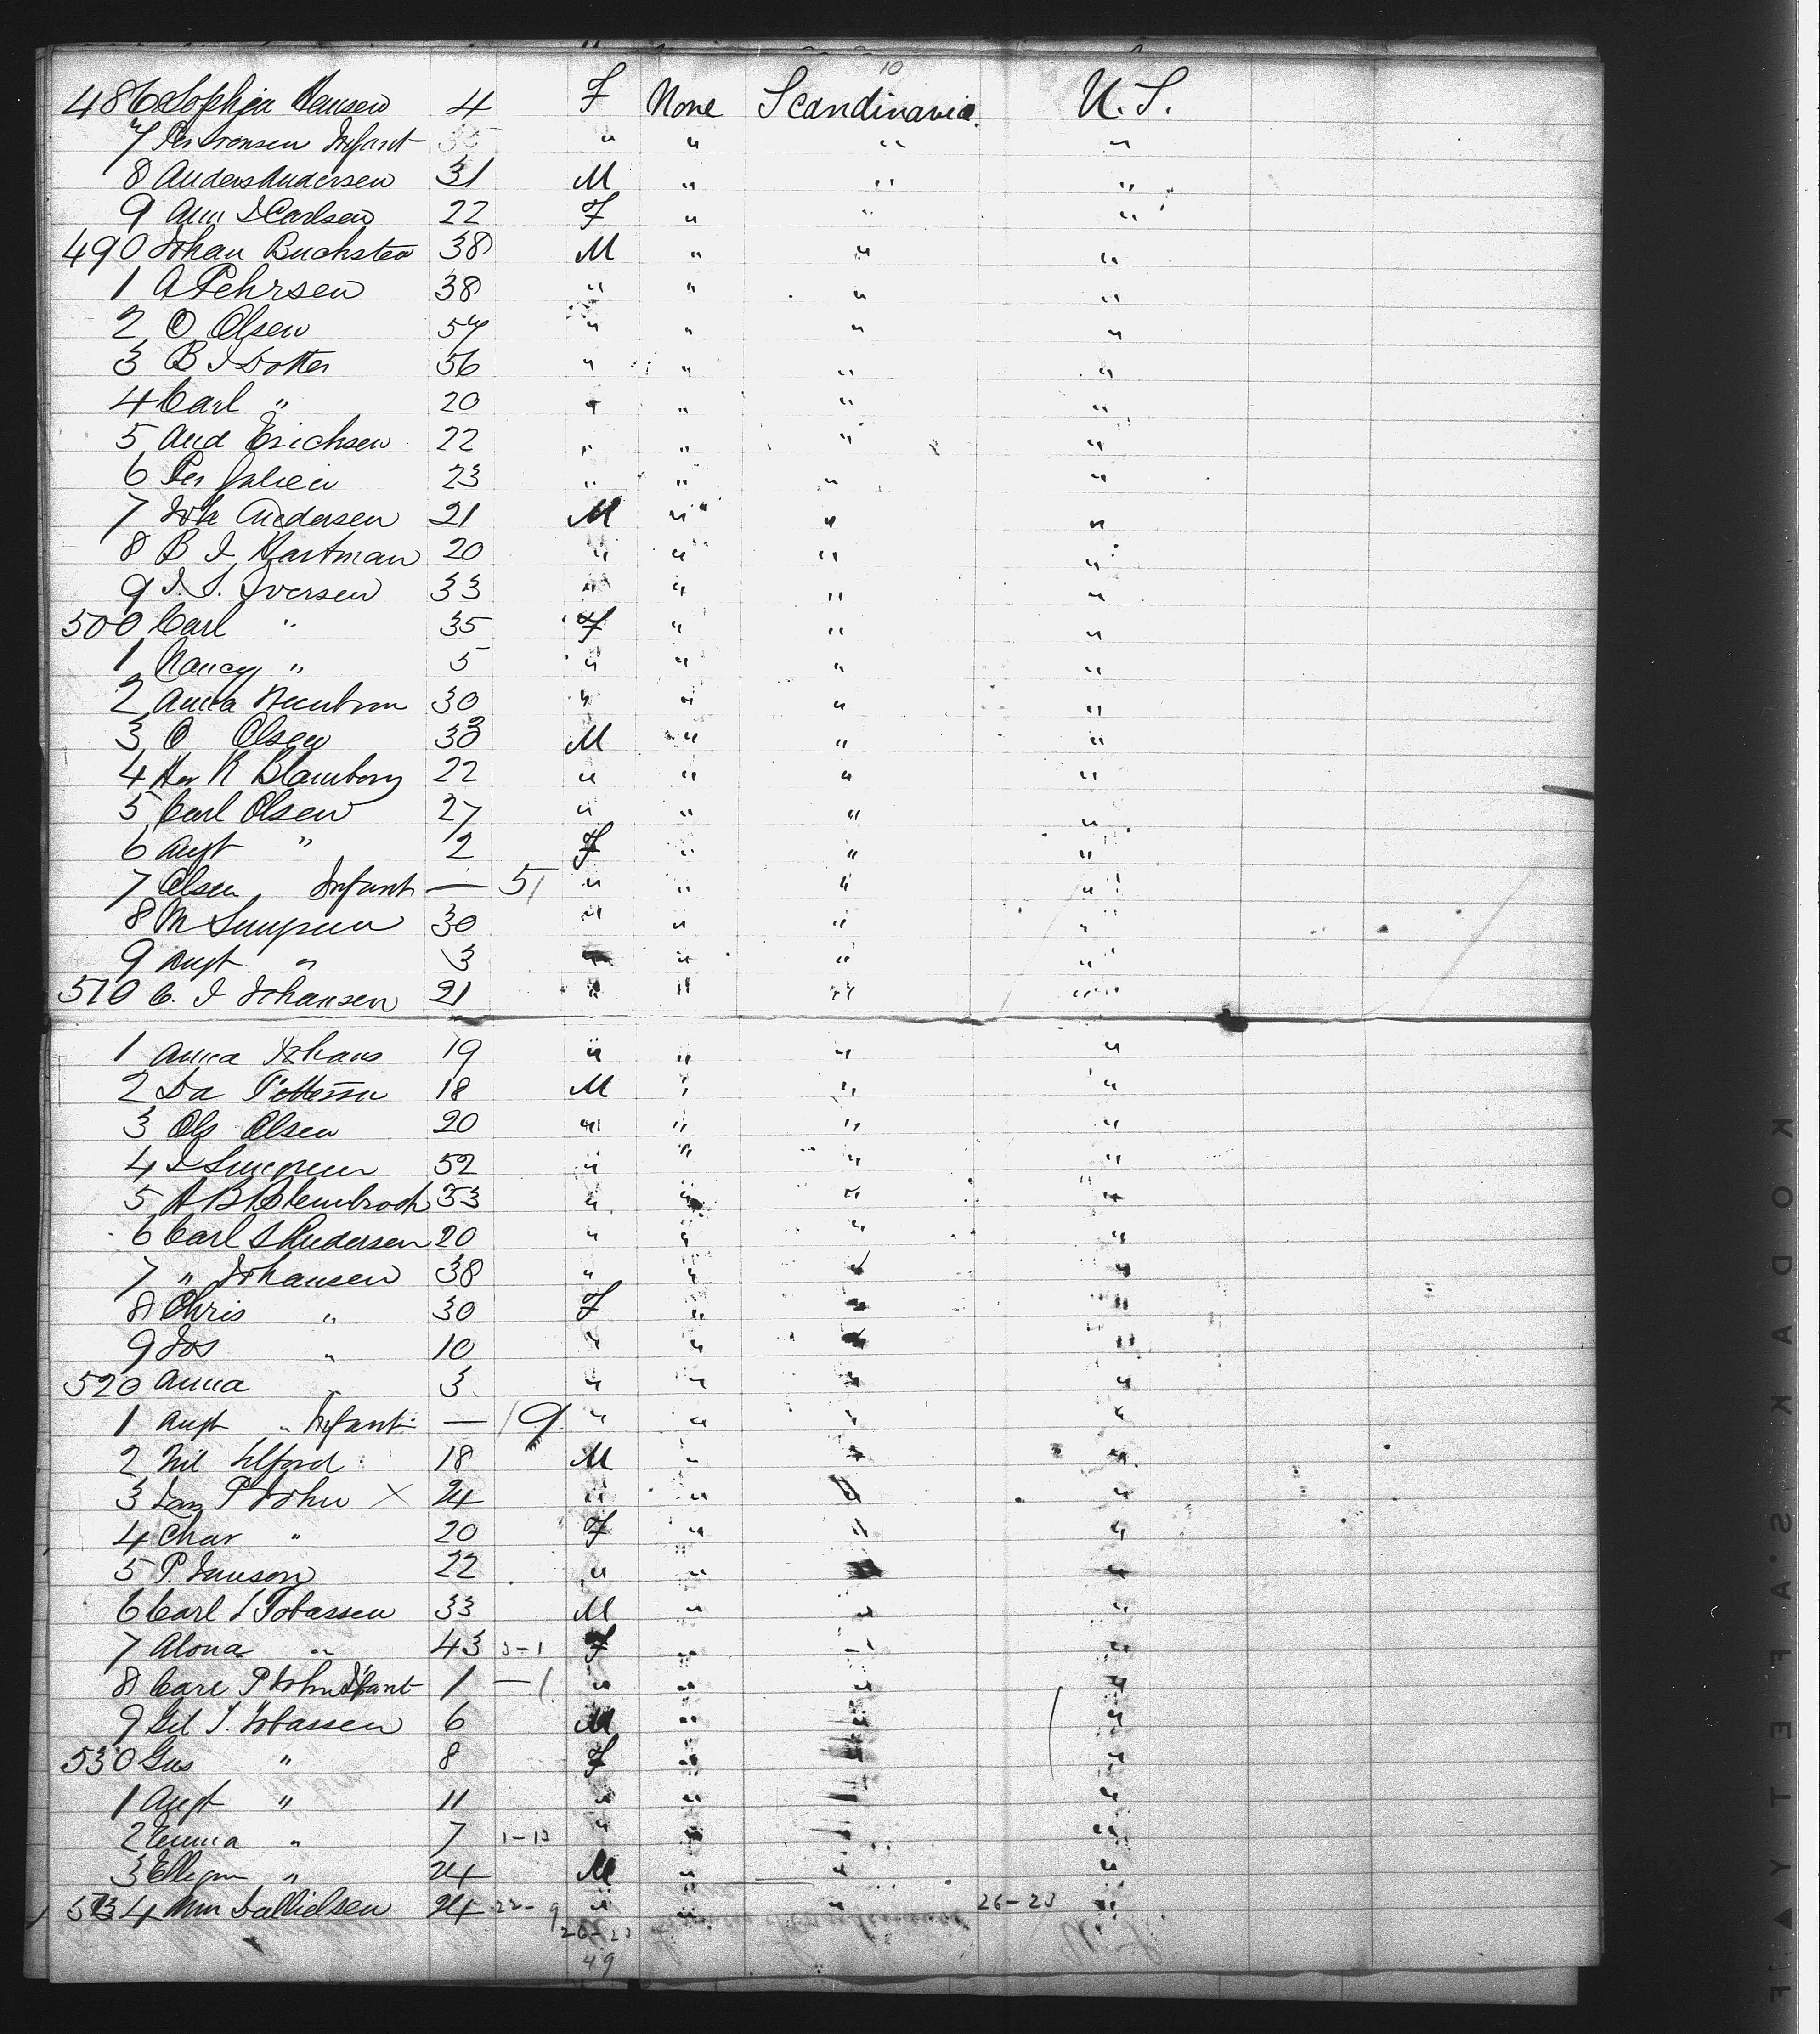 10
486 Sophia Hansen 4 F None Scandinavia U. S.
7 Infant " " " "
8 Anders Andersen 31 M " " "
9 Ann S Carlsen 22 F " " "
490 Johan Buchsten 38 M " " "
1 A Pehrsen 38 " " " "
2 O Olsen 57 " " " "
3 B I Dotter 56 " " " "
4 Carl " 20 " " " "
5 And Erichsen 22 " " " "
6 Per 23 " " " "
7 Joh Andersen 21 M " " "
8 B I Hartman 20 " " " "
9 I. S. Iversen 33 " " " "
500 Carl " 35 F " " "
1 Nancy " 5 " " " "
2 Anna 30 " " " "
3 O Olsen 30 M " " "
4 K Blomborg 22 " " " "
5 Carl Olsen 27 " " " "
6 Augt " 2 F " " "
7 Olsen Infant — 51 " " " "
8 M 30 " " " "
9 Augt " 3 " " " "
510 C. I Johansen 21 " " " "
1 Anna Johans 19 " " " "
2 Da Petterson 18 M " " "
3 Ole Olsen 20 " " " "
4 I 52 " " " "
5 A B 33 " " " "
6 Carl S Andersen 20 " " " "
7 " Johansen 38 " " " "
8 Chris " 30 F " " "
9 Jos " 10 " " " "
520 Anna " 3 " " " "
1 Augt " Infant — 19 " " " "
2 Nil Ilford 18 M " " "
3 P John X 24 " " " "
4 Char " 20 F " " "
5 P. Jonson 22 " " " "
6 Carl I Tobassen 33 M " " "
7 Alona " 43 F " " "
8 Carl P John Infant 1 — 1 " " " "
9 Gil I. Tobassen 6 M " " "
530 Gus " 8 F " " "
1 Augt " 11 " " " "
2 Emma " 7 1-13 " " " "
3 " 24 M " " "
534 Wm Dallielsen 24 22-9 " " " 26-23 "
26-23
49
KODAK SAFETY F